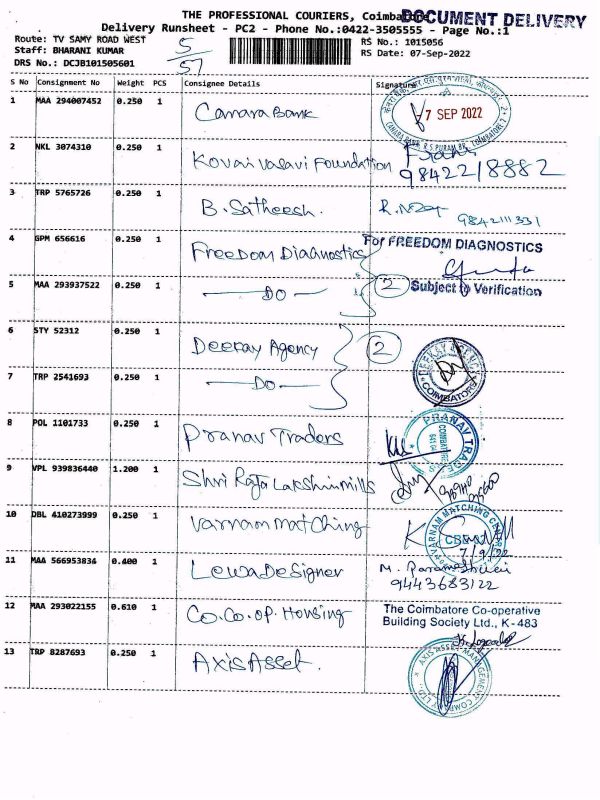 THE PROFESSIONAL COURIERS, Coimbatore
DOCUMENT DELIVERY
Delivery Runsheet - PC2 - Phone No.:0422-3505555 - Page No.:1
Route: TV SAMY ROAD WEST 5/57 RS No.: 1015056
Staff: BHARANI KUMAR RS Date: 07-Sep-2022
DRS No.: DCJB101505601
S No Consignment No Weight PCS Consignee Details Signature
1 MAA 294007452 0.250 1 Canara Bank 7 SEP 2022
2 NKL 3074310 0.250 1 Kovai Vasavi Foundation 9842218882
3 TRP 5765726 0.250 1 B. Satheesh. 9842111331
4 GPM 656616 0.250 1 Freedom Diagnostics For FREEDOM DIAGNOSTICS
5 MAA 293937522 0.250 1 DO 2 Subject to Verification
6 STY 52312 0.250 1 Deekay Agency 2 DEEKAY AGENCY COIMBATORE
7 TRP 2541693 0.250 1 DO
8 POL 1101733 0.250 1 Pranav Traders PRANAV TRADE
9 VPL 939836440 1.200 1 Shri Raja Lakshmi mills
10 DBL 410273999 0.250 1 Varnam Matching VARNAM MATCHING CENTRE 7/9/22
11 MAA 566953834 0.400 1 Lewa Designer M. 9443683122
12 MAA 293022155 0.610 1 Co.Co.op. Housing The Coimbatore Co-operative
Building Society Ltd., K-483
13 TRP 8287693 0.250 1 Axis Asset. AXIS ASSET MANAGEMENT COMPANY LTD.